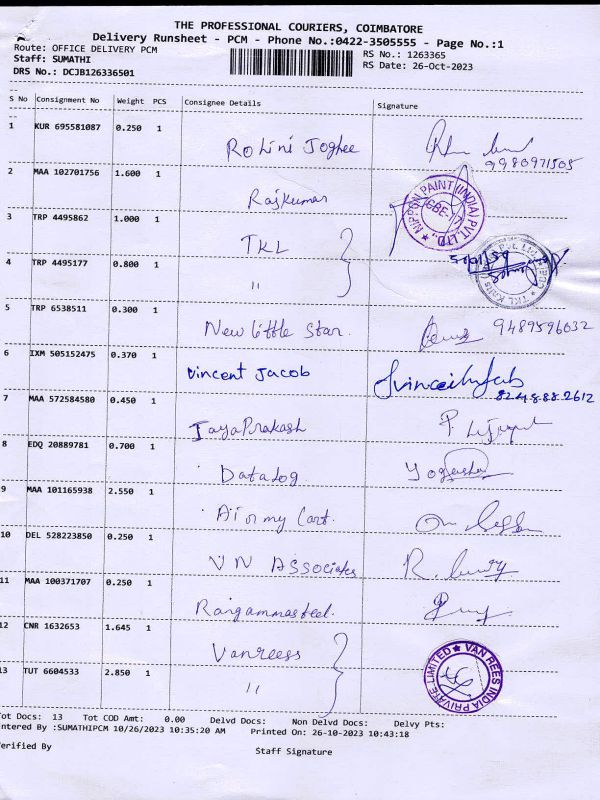 THE PROFESSIONAL COURIERS, COIMBATORE
Delivery Runsheet - PCM - Phone No.:0422-3505555 - Page No.:1
Route: OFFICE DELIVERY PCM
RS No.: 1263365
Staff: SUMATHI
RS Date: 26-Oct-2023
DRS No.: DCJB126336501
S No Consignment No Weight PCS Consignee Details Signature
1 KUR 695581087 0.250 1
Rohini Joghee
9980971505
2 MAA 102701756 1.600 1
Rajkumar
NIPPON PAINT (INDIA) PVT. LTD.,
CBE-
3 TRP 4495862 1.000 1
TKL
4 TRP 4495177 0.800 1
"
5 TRP 6538511 0.300 1
New little Star.
9489596032
6 IXM 505152475 0.370 1
Vincent Jacob
8248882612
7 MAA 572584580 0.450 1
JayaPrakash
8 EDQ 20889781 0.700 1
Datalog
9 MAA 101165938 2.550 1
Air my Cart.
10 DEL 528223850 0.250 1
VN Associates
11 MAA 100371707 0.250 1
Rangammasteel.
12 CNR 1632653 1.645 1
Vanreess
13 TUT 6604533 2.850 1
"
VAN REES INDIA PRIVATE LIMITED
Tot Docs: 13 Tot COD Amt: 0.00 Delvd Docs: Non Delvd Docs: Delvy Pts:
ntered By :SUMATHIPCM 10/26/2023 10:35:20 AM Printed On: 26-10-2023 10:43:18
erified By
Staff Signature